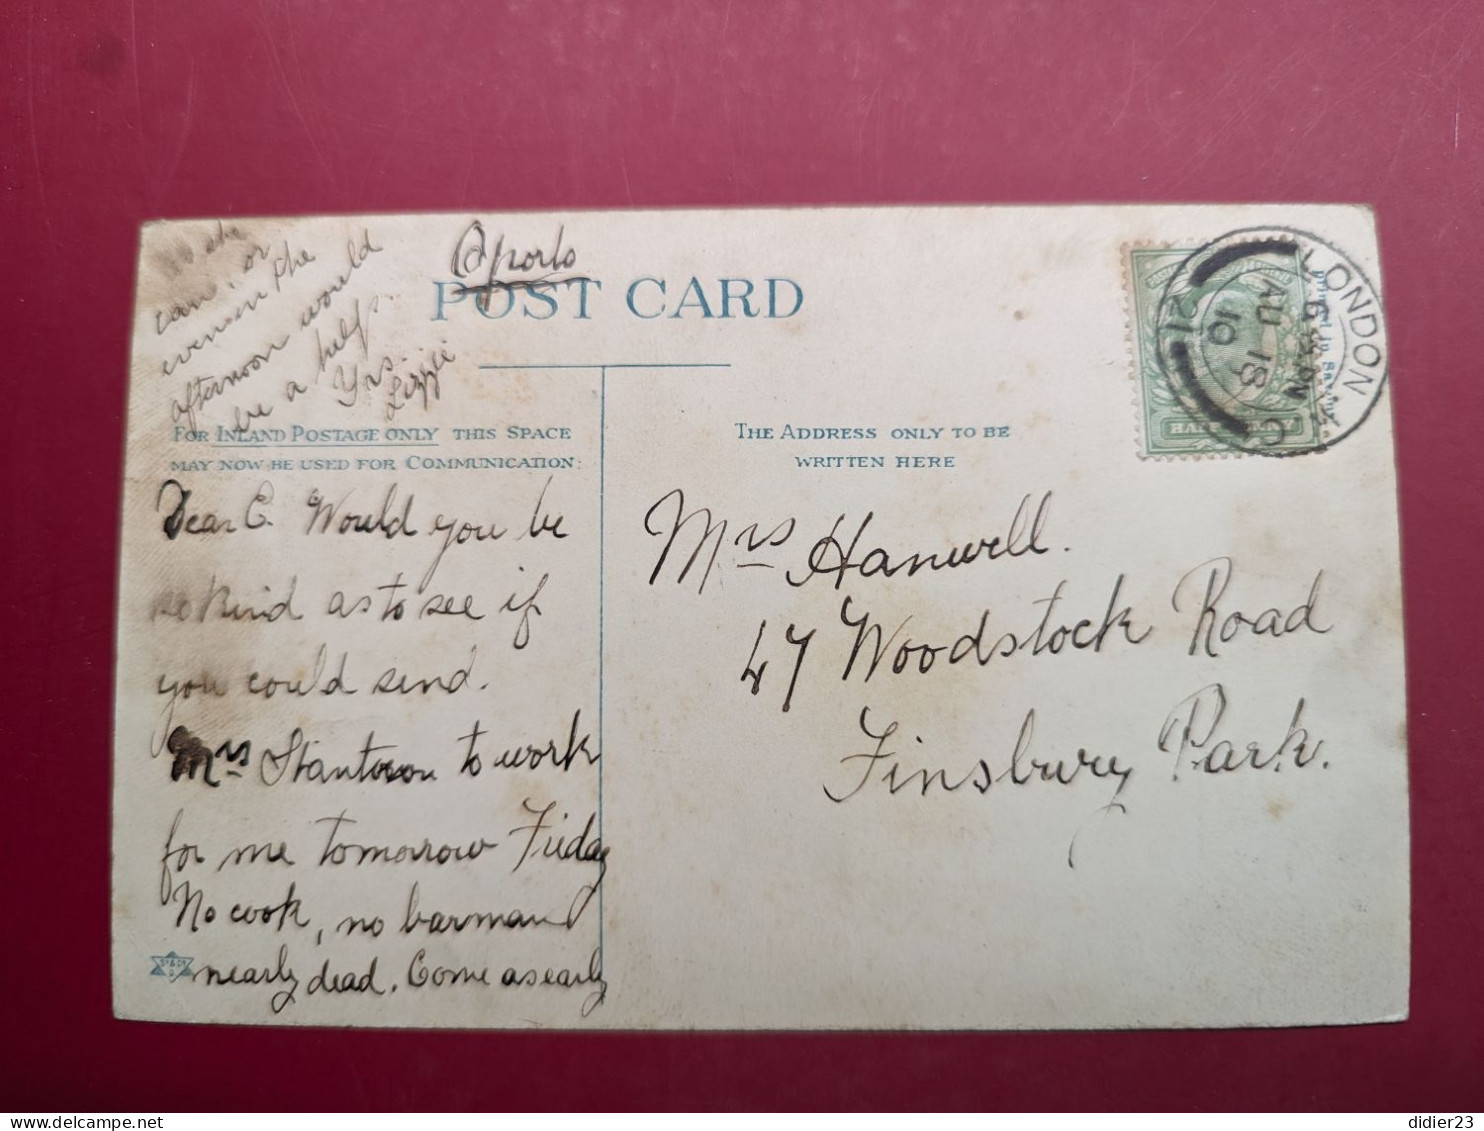 Oporto
POST CARD
FOR INLAND POSTAGE ONLY THIS SPACE
MAY NOW BE USED FOR COMMUNICATION:
Dear C. Would you be
so kind as to see if
you could send.
Mrs Stantoron to work
for me tomorrow Friday
No cook, no barman
nearly dead. Come as early
as she
can, or
even in the
afternoon would
be a help.
Yrs.
Lizzie
THE ADDRESS ONLY TO BE
WRITTEN HERE
Mrs Hanwell.
47 Woodstock Road
Finsbury Park.
LONDON
6
AU 18
10
12
didier23